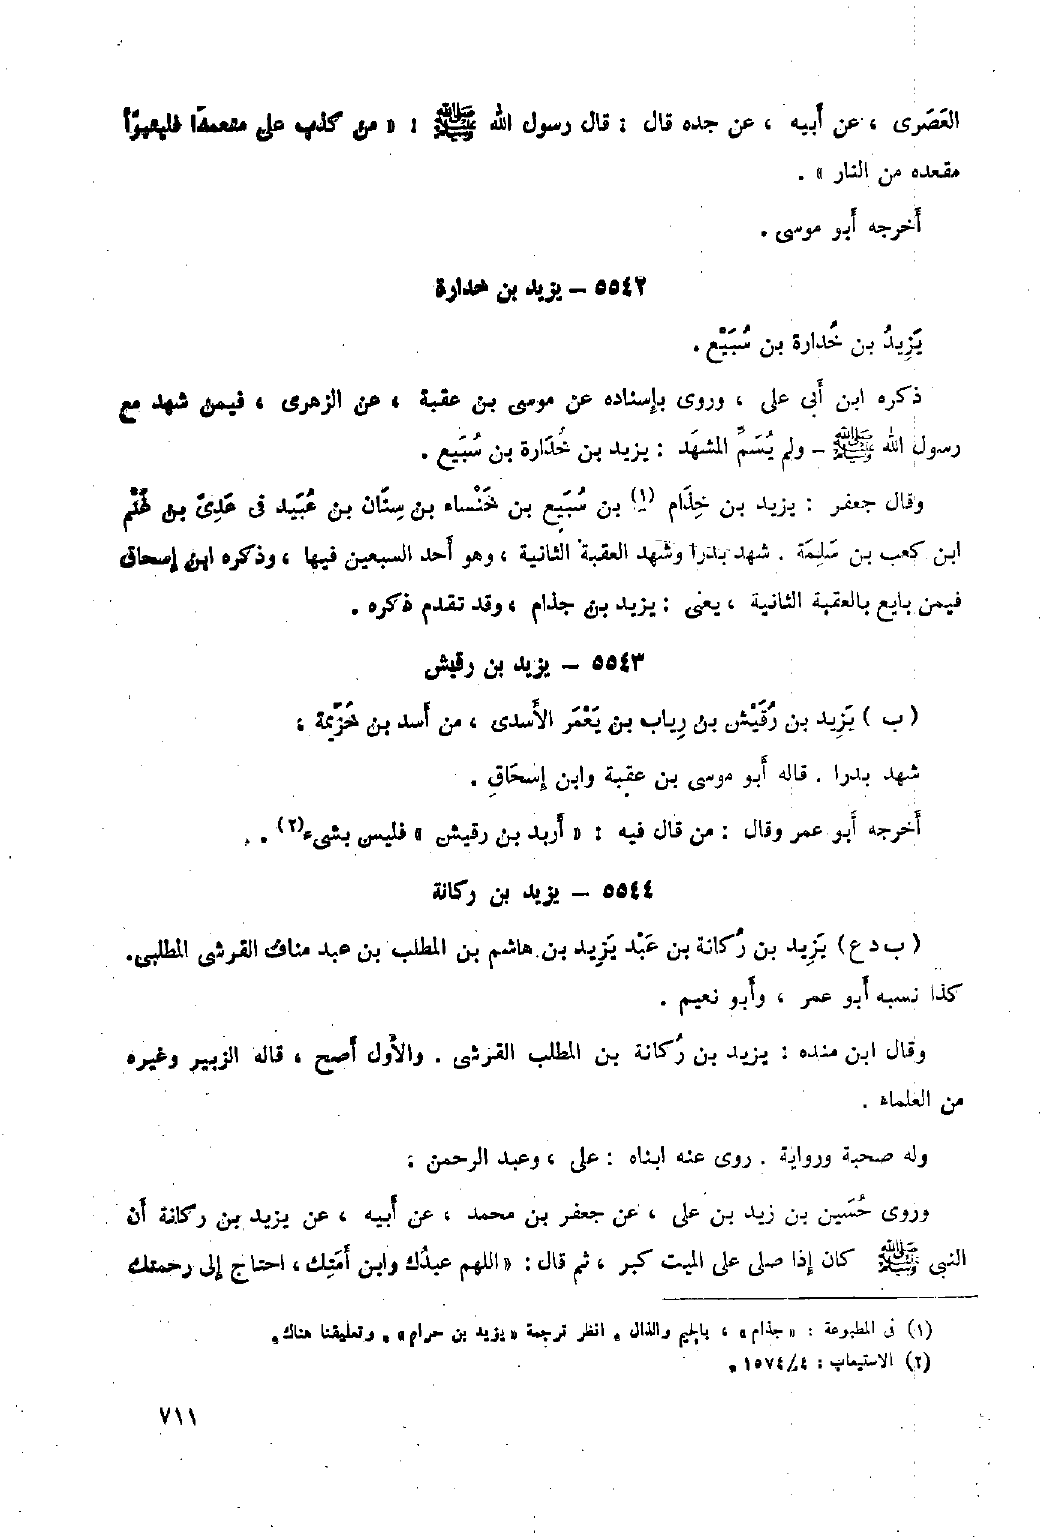 العَصَرى ، عن أَبيه ، عن جده قال : قال رسول الله ﷺ : « من كذب على متعمدًا فليتبوّأ
مقعده من النار » .
أَخرجه أَبو موسى .
٥٥٤٢ – يزيد بن خدارة
يَزِيدُ بن خُدارة بن سُبَيْع .
ذكره ابن أَبى على ، وروى بإسناده عن موسى بن عقبة ، عن الزهرى ، فيمن شهد مع
رسول الله ﷺ – ولم يُسَمِّ المشهَد : يزيد بن خُدَارة بن سُبَيع .
وقال جعفر : يزيد بن خِذَام (١) بن سُبَيع بن خَنْساء بن سِنَان بن عُبَيد فى عَدِىّ بن غَنْم
ابن كعب بن سَلِمَة . شهد بدرا وشهد العقبة الثانية ، وهو أَحد السبعين فيها ، وذكره ابن إسحاق
فيمن بايع بالعقبة الثانية ، يعنى : يزيد بن جذام ، وقد تقدم ذكره .
٥٥٤٣ – يزيد بن رقيش
( ب ) يَزِيد بن رُقَيْش بن رِياب بن يَعْمَر الأَسدى ، من أَسد بن خُزَيمة ؛
شهد بدرا . قاله أَبو موسى بن عقبة وابن إِسحَاق .
أَخرجه أَبو عمر وقال : من قال فيه : « أَربد بن رقيش » فليس بشىء(٢) .
٥٥٤٤ – يزيد بن ركانة
( ب د ع ) يَزِيد بن رُكانة بن عَبْد يَزِيد بن هاشم بن المطلب بن عبد مناف القرشى المطلبى.
كذا نسبه أَبو عمر ، وأَبو نعيم .
وقال ابن منده : يزيد بن رُكانة بن المطلب القرشى . والأَول أَصح ، قاله الزبير وغيره
من العلماء .
وله صحبة ورواية . روى عنه ابناه : على ، وعبد الرحمن :
وروى حُسَين بن زيد بن على ، عن جعفر بن محمد ، عن أَبيه ، عن يزيد بن ركانة أَن
النبى ﷺ كان إذا صلى على الميت كبر ، ثم قال : « اللهم عبدُك وابن أَمَتِك ، احتاج إلى رحمتك
(١) فى المطبوعة : « جذام » ، بالجيم والذال . انظر ترجمة « يزيد بن حرام » ، وتعليقنا هناك .
(٢) الاستيعاب : ٤/ ١٥٧٤ .
٧١١